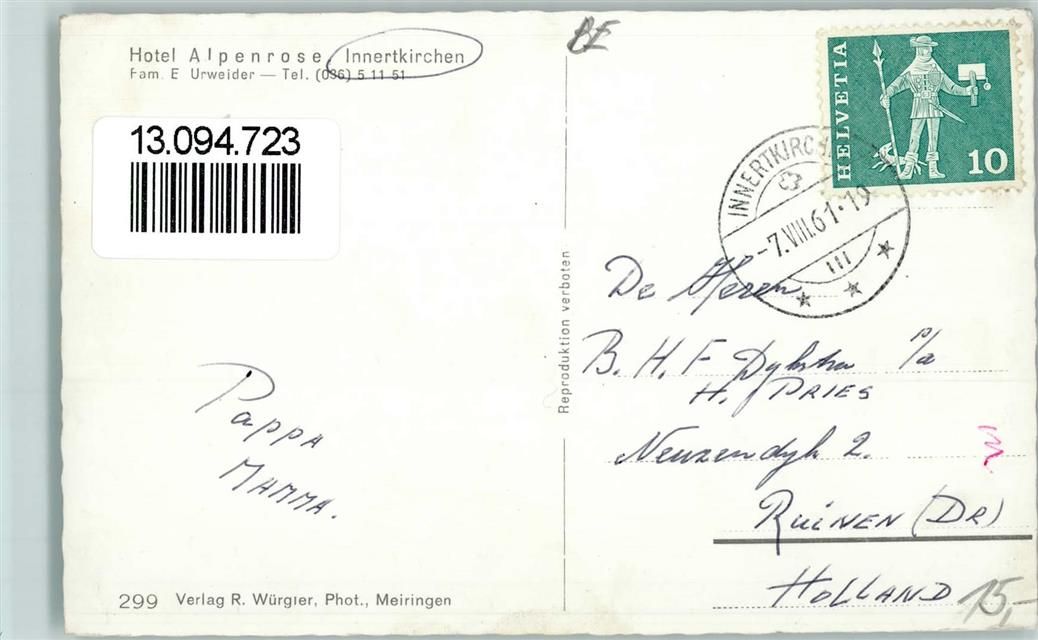 Hotel Alpenrose Innertkirchen
Fam. E Urweider — Tel. (036) 5 11 51
BE
13.094.723
HELVETIA
10
INNERTKIRCHEN
-7.VIII.61-19
Reproduktion verboten
De Heren
B. H. F Dykstra P/a
H. PRIES
2.
Pappa
MAMMA.
RUINEN (DR)
HOLLAND
15,-
299 Verlag R. Würgler, Phot., Meiringen